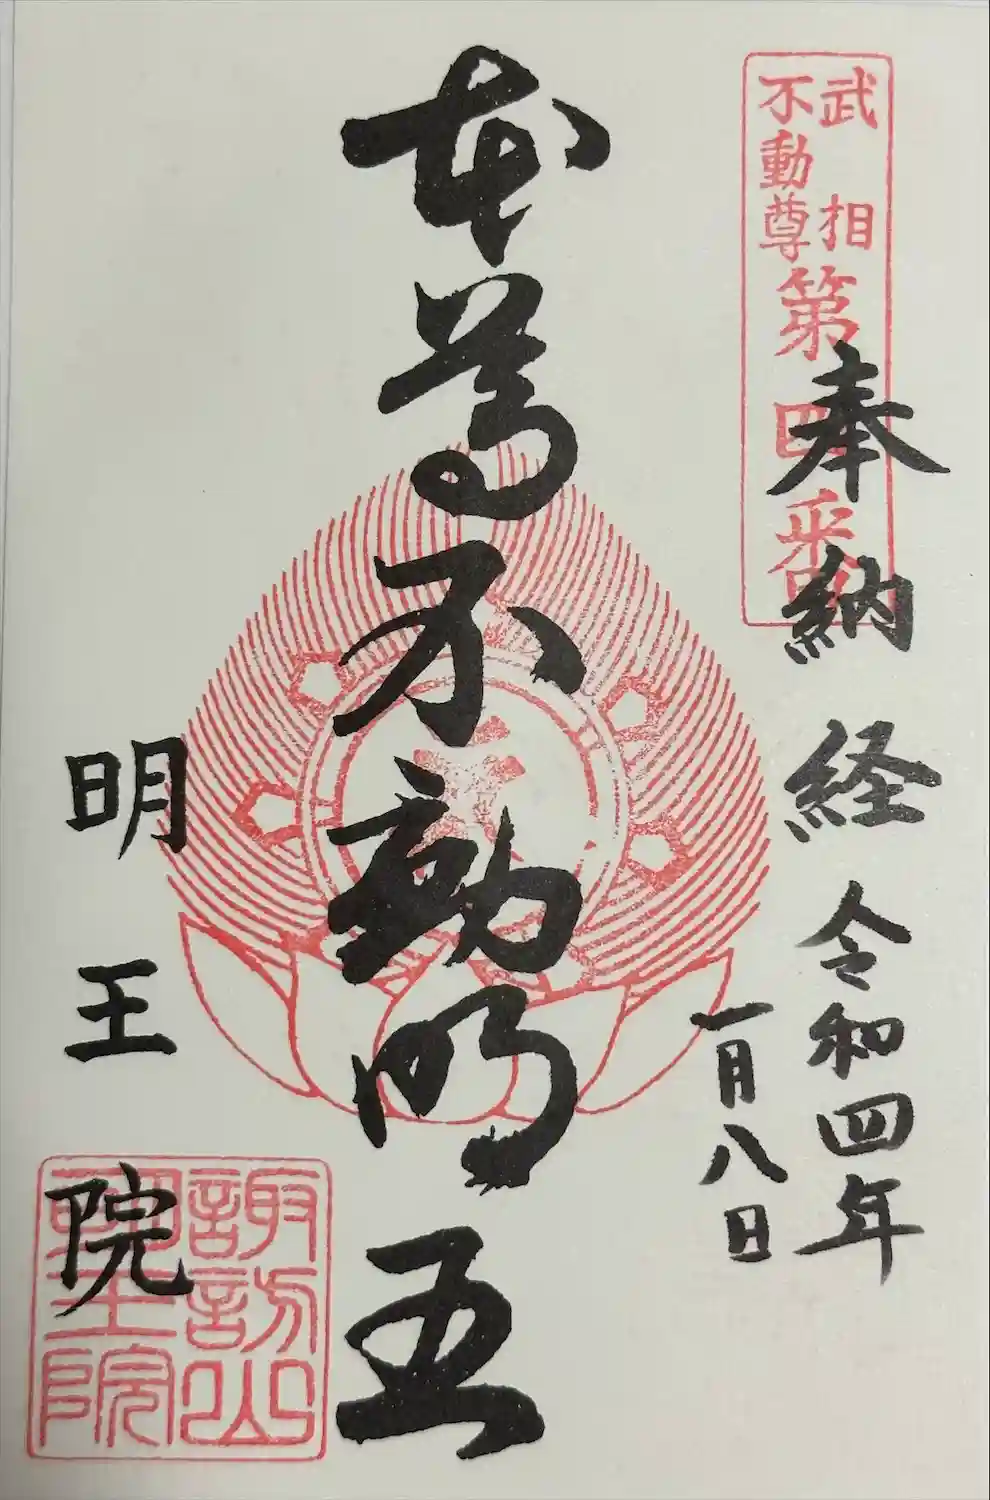 武相
不動尊
第四番
奉納経
令和四年
一月八日
本尊不動明王
明王院
諏訪山
明王院